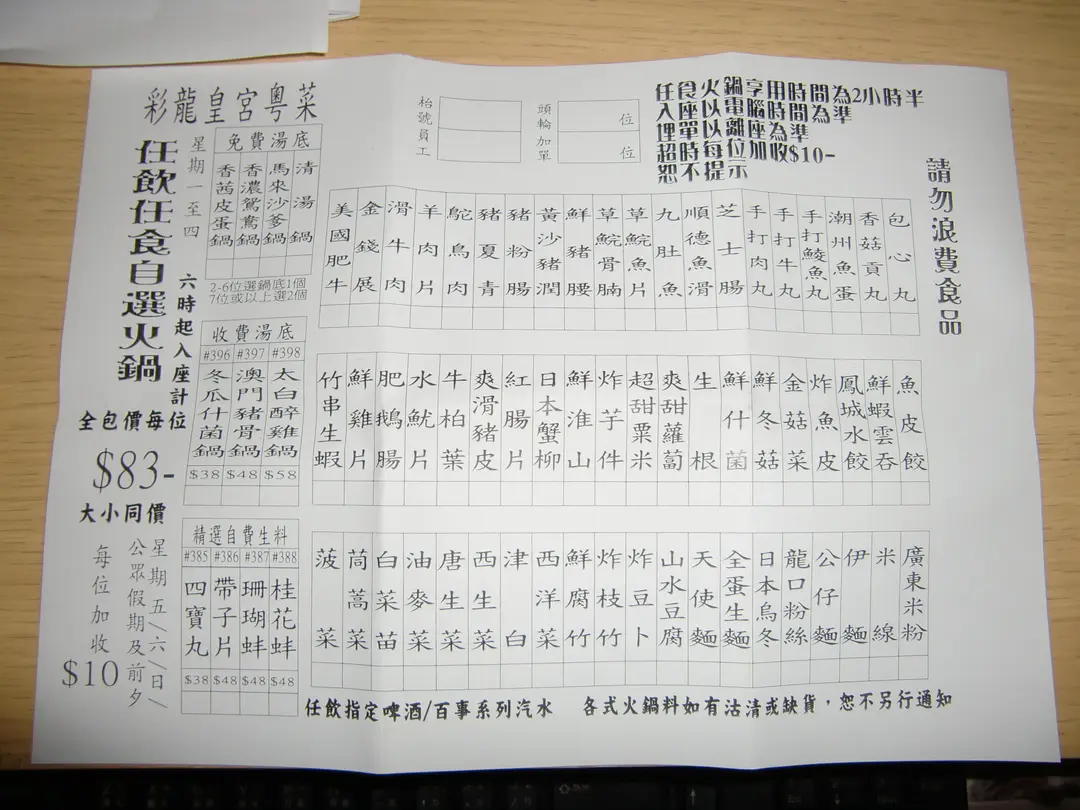 彩龍皇宮粵菜
任飲任食自選火鍋
星期一至四
六時起入座計
全包價每位
$83-
大小同價
星期五/六/日/
公眾假期及前夕
每位加收
$10
免費湯底
清湯鍋
馬來沙爹鍋
香濃鴛鴦鍋
香茜皮蛋鍋
2-6位選鍋底1個
7位或以上選2個
收費湯底
#396 #397 #398
冬瓜什菌鍋
澳門豬骨鍋
太白醉雞鍋
$38 $48 $58
精選自費生料
#385 #386 #387 #388
四寶丸
帶子片
珊瑚蚌
桂花蚌
$38 $48 $48 $48
枱號
員工
頭輪 位
加單 位
任食火鍋享用時間為2小時半
入座以電腦時間為準
埋單以離座為準
超時每位加收$10-
恕不提示
請勿浪費食品
包心丸
香菇貢丸
潮州魚蛋
手打鯪魚丸
手打牛丸
手打肉丸
芝士腸
順德魚滑
九肚魚
草鯇魚片
草鯇骨腩
鮮豬腰
黃沙豬潤
豬粉腸
豬夏青
鴕鳥肉
羊肉片
滑牛肉
金錢展
美國肥牛
魚皮餃
鮮蝦雲吞
鳳城水餃
炸魚皮
金菇菜
鮮冬菇
鮮什菌
生根
爽甜蘿蔔
超甜粟米
炸芋件
鮮淮山
日本蟹柳
紅腸片
爽滑豬皮
牛柏葉
水魷片
肥鵝腸
鮮雞片
竹串生蝦
廣東米粉
米線
伊麵
公仔麵
龍口粉絲
日本烏冬
全蛋生麵
天使麵
山水豆腐
炸豆卜
炸枝竹
鮮腐竹
西洋菜
津白
西生菜
唐生菜
油麥菜
白菜苗
茼蒿菜
菠菜
任飲指定啤酒/百事系列汽水
各式火鍋料如有沽清或缺貨，恕不另行通知